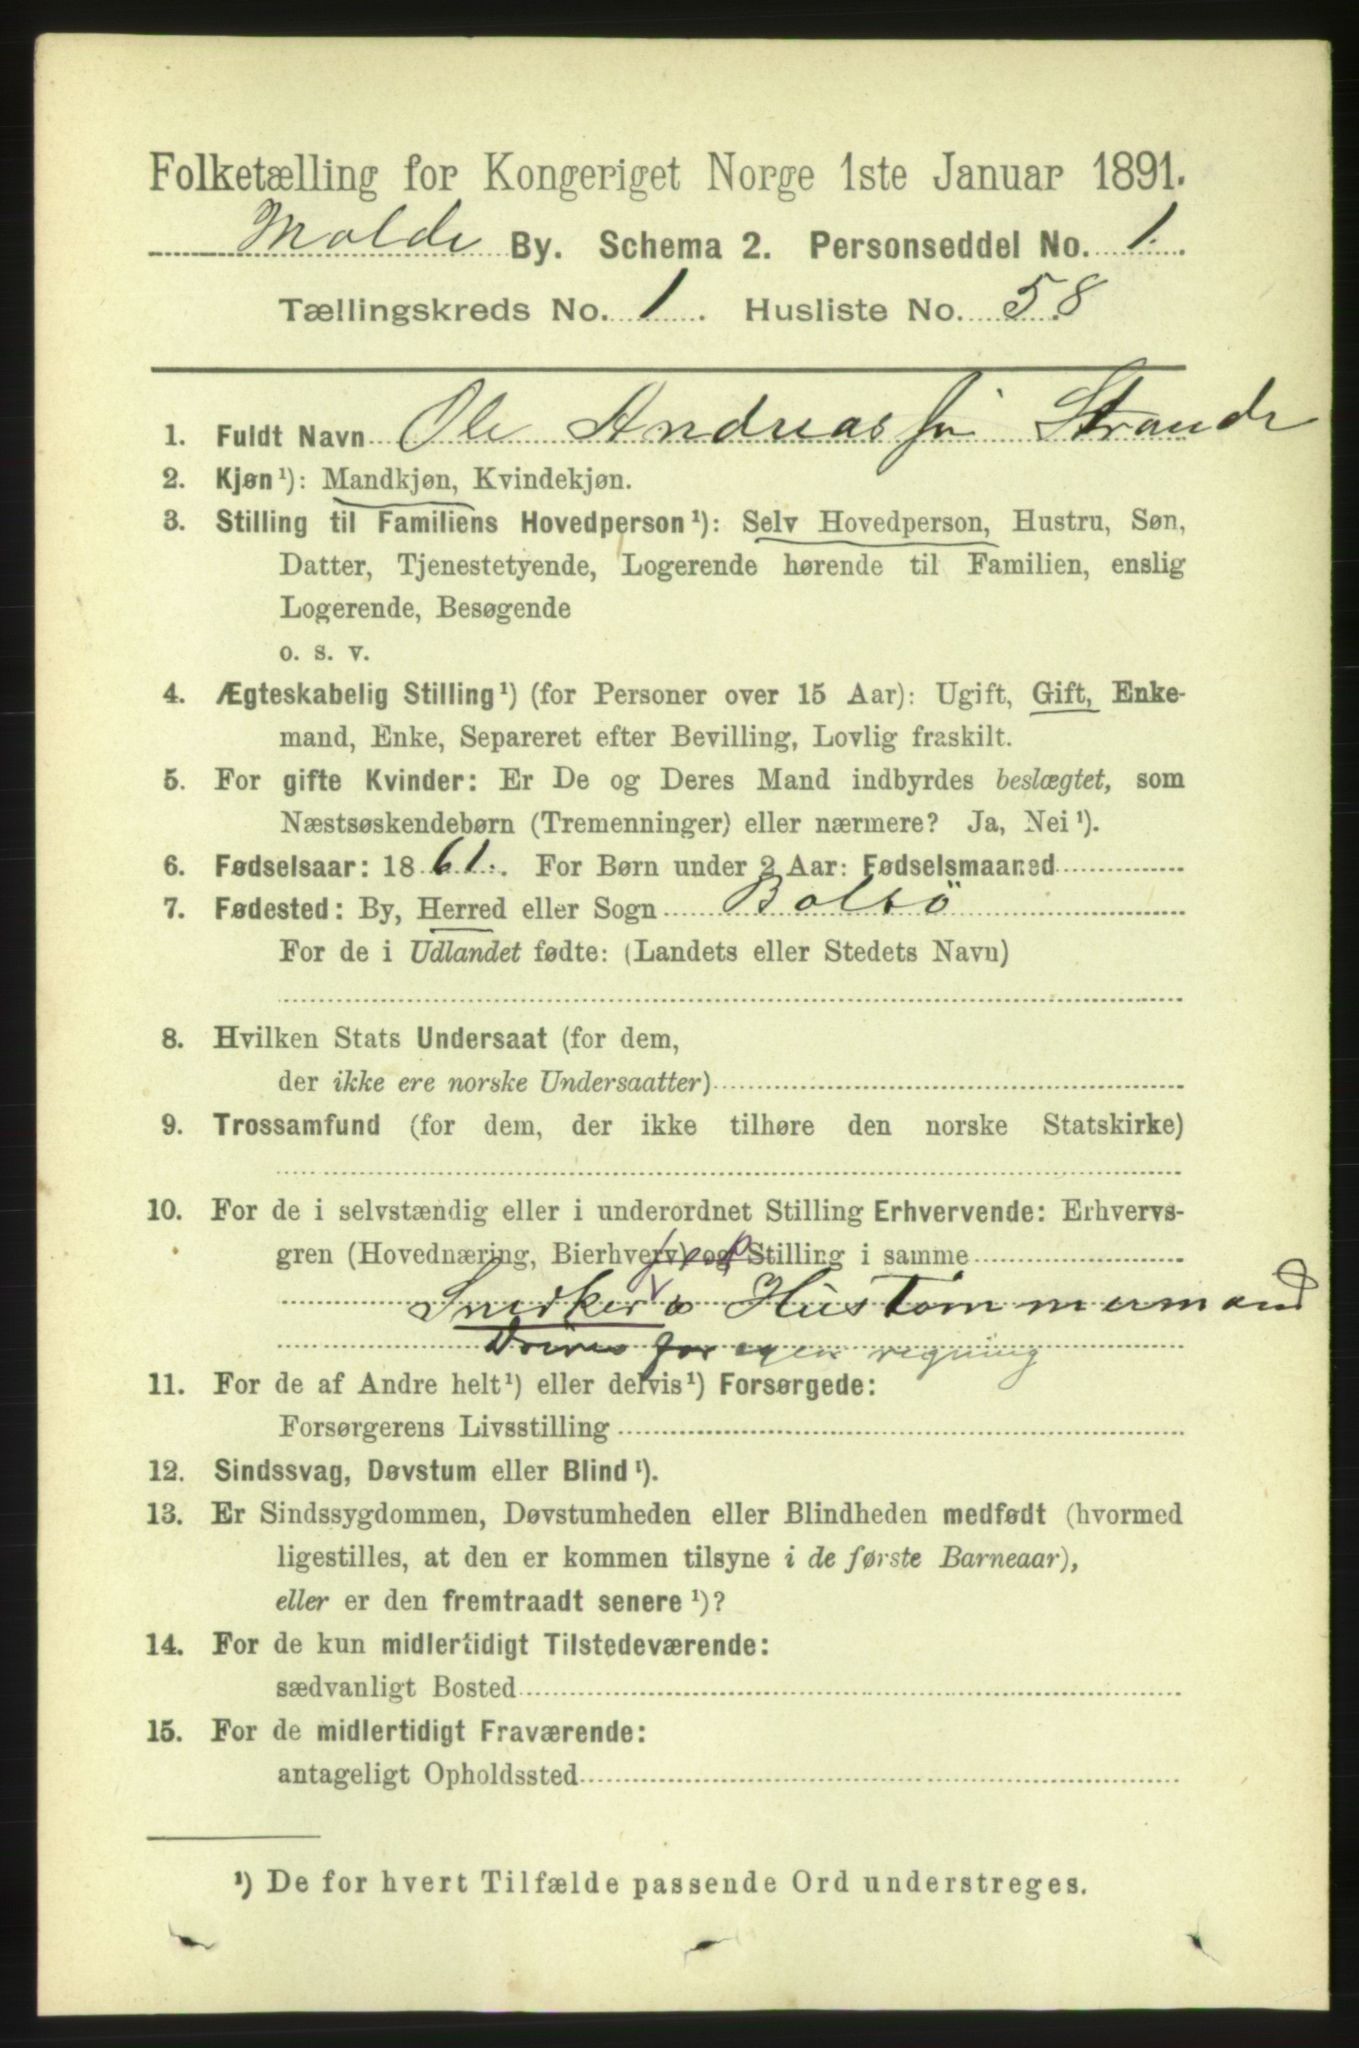 Folketælling for Kongeriget Norge 1ste Januar 1891.
Molde By. Schema 2. Personseddel No. 1.
Tællingskreds No. 1. Husliste No. 58
1. Fuldt Navn Ole Andreas Strande
2. Kjøn¹): Mandkjøn, Kvindekjøn.
3. Stilling til Familiens Hovedperson¹): Selv Hovedperson, Hustru, Søn,
Datter, Tjenestetyende, Logerende hørende til Familien, enslig
Logerende, Besøgende
o. s. v.
4. Ægteskabelig Stilling¹) (for Personer over 15 Aar): Ugift, Gift, Enke-
mand, Enke, Separeret efter Bevilling, Lovlig fraskilt.
5. For gifte Kvinder: Er De og Deres Mand indbyrdes beslægtet, som
Næstsøskendebørn (Tremenninger) eller nærmere? Ja, Nei¹).
6. Fødselsaar: 1861. For Børn under 2 Aar: Fødselsmaaned
7. Fødested: By, Herred eller Sogn Bolsö
For de i Udlandet fødte: (Landets eller Stedets Navn)
8. Hvilken Stats Undersaat (for dem,
der ikke ere norske Undersaatter)
9. Trossamfund (for dem, der ikke tilhøre den norske Statskirke)
10. For de i selvstændig eller i underordnet Stilling Erhvervende: Erhvervs-
gren (Hovednæring, Bierhverv) og Stilling i samme
Snedker o Hustømmermand
Drives for egen regning
11. For de af Andre helt¹) eller delvis¹) Forsørgede:
Forsørgerens Livsstilling
12. Sindssvag, Døvstum eller Blind¹).
13. Er Sindssygdommen, Døvstumheden eller Blindheden medfødt (hvormed
ligestilles, at den er kommen tilsyne i de første Barneaar),
eller er den fremtraadt senere¹)?
14. For de kun midlertidigt Tilstedeværende:
sædvanligt Bosted
15. For de midlertidigt Fraværende:
antageligt Opholdssted
¹) De for hvert Tilfælde passende Ord understreges.